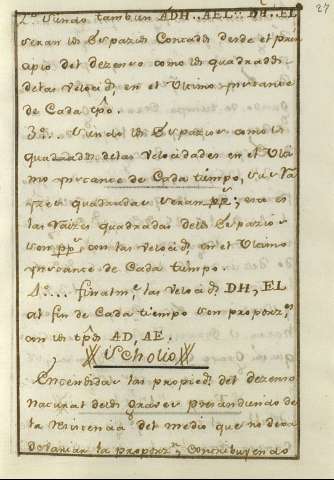 27
2º Siendo tambien ADH..AEL:: DH..EL
seran los Espazios Contados desde el prin
zipio del dezenso como los quadrados
de las velocids en el Ultimo ynstante
de Cada tpo.
3º... Siendo los Espazios como los
quadrados delas velocidades en el Ulti
mo ynstance de Cada tiempo, sus Ra
yzes quadradas seran pp.s; esto es
las Raizes quadradas delos Espazios
son pp.s con las velocids en el Ultimo
ynstance de Cada tiempo.
4º.... finalm.e las velocids DH, EL
al fin de Cada tiempo son proporz.s
con los tpos AD, AE.
Scholio
Entendidas las propieds del dezenso
natural delos graves preszindiendo de
la resistencia del medio que no dexa
de variar la proporz.n, contribuyendo